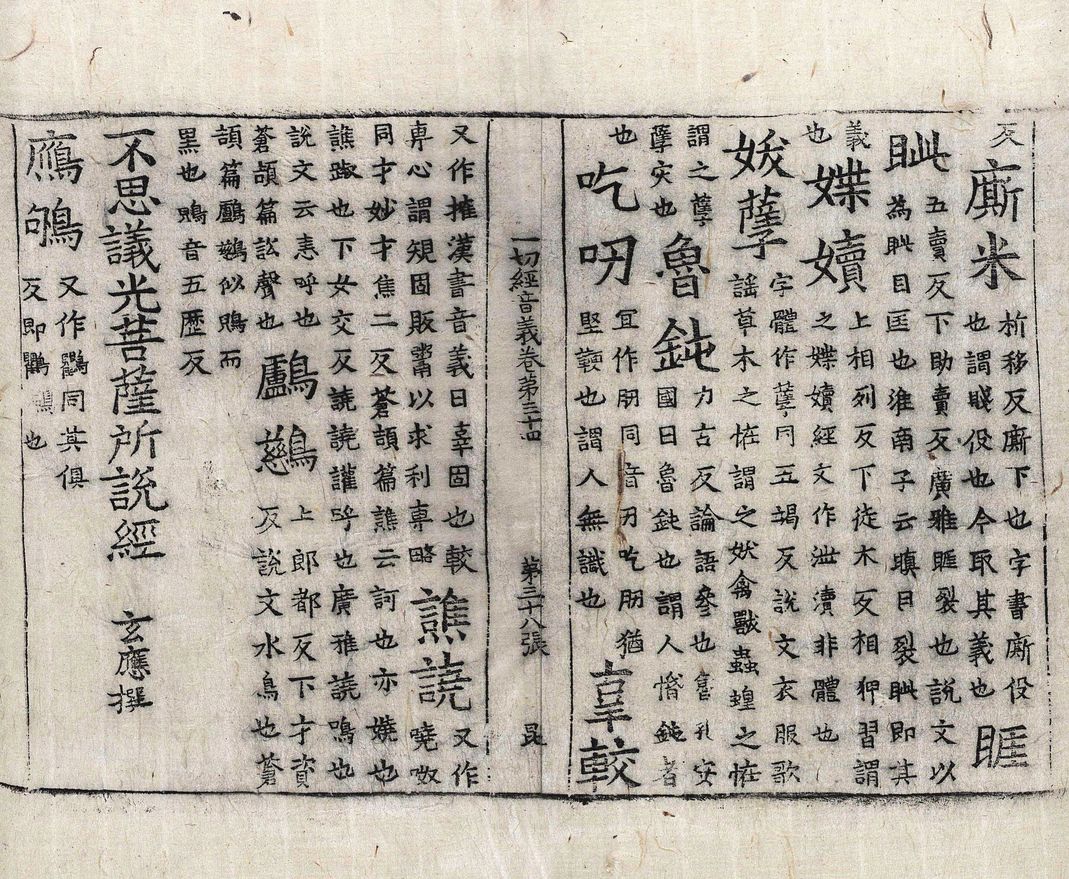 反 廝米 斯移反廝下也字書廝役
也謂賤役也今取其義也 睚
眦 五賣反下助賣反廣雅睚裂也說文以
為眦目匡也淮南子云瞋目裂眦即其
義
也 媟嬻 上相列反下徒木反相狎習謂
之媟嬻經文作泄瀆非體也
妖孽 字體作孼同五竭反說文衣服歌
謠草木之恠謂之妖禽獸蟲蝗之恠
謂之孽
孽灾也 魯鈍 力古反論語參也魯孔安
國曰魯鈍也謂人惛鈍者
也 吃 冝作肕同音刃吃肕猶
堅䩕也謂人無識也 辜較
一切經音義卷第三十四 第三十八張 昆
又作搉漢書音義曰辜固也較
專心謂規固販粥以求利專略 譙譊 又作
嘵呶
同才妙才焦二反蒼頡篇譙云訶也亦嬈也
譙踧也下女交反譊譊讙呼也廣雅譊鳴也
說文云恚呼也
蒼頡篇訟聲也 鸕鶿 上郎都反下才資
反說文水鳥也蒼
頡篇鸕鶿似鶂而
黑也鶂音五歷反
不思議光菩薩所說經 玄應撰
鴈鴝 又作鸜同其俱
反即鸜鵒也